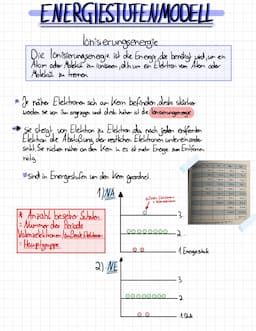 ENERGIESTUFENMODELL
Ionisierungsenergie
Die Ionisierungsenergie ist die Energie, die benötigt wird, um ein
Atom oder Molekül zu ionisieren, d.h. um ein Elektron vom Atom oder
Molekül zu trennen.
Je näher Elektronen sich am Kern befinden, desto stärker
werden sie von ihm angezogen und desto höher ist die Ionisierungsenergie
sie steigt von Elektron zu Elektron, da nach jedem entfernten
Elektron die Abstoßung der restlichen Elektronen untereinander
sinkt. Sie rücken näher an den Kern → es ist mehr Energie zum Entfernen
nötig.
sind in Energiestufen um den Kern geordnet
1) NA
3.
2.
1. Energiestufe
* Anzahl besetzter Schalen
= Nummer der Periode
Valenzelektronen
= Hauptgruppe
2) NE
3.
2.